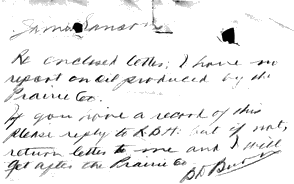 Re enclosed letter; I have no
report on oil produced by the
Prairie Co.
If you have a record of this
please reply to R.B.H. but if not,
return letter to me and I will
get after the Prairie Co